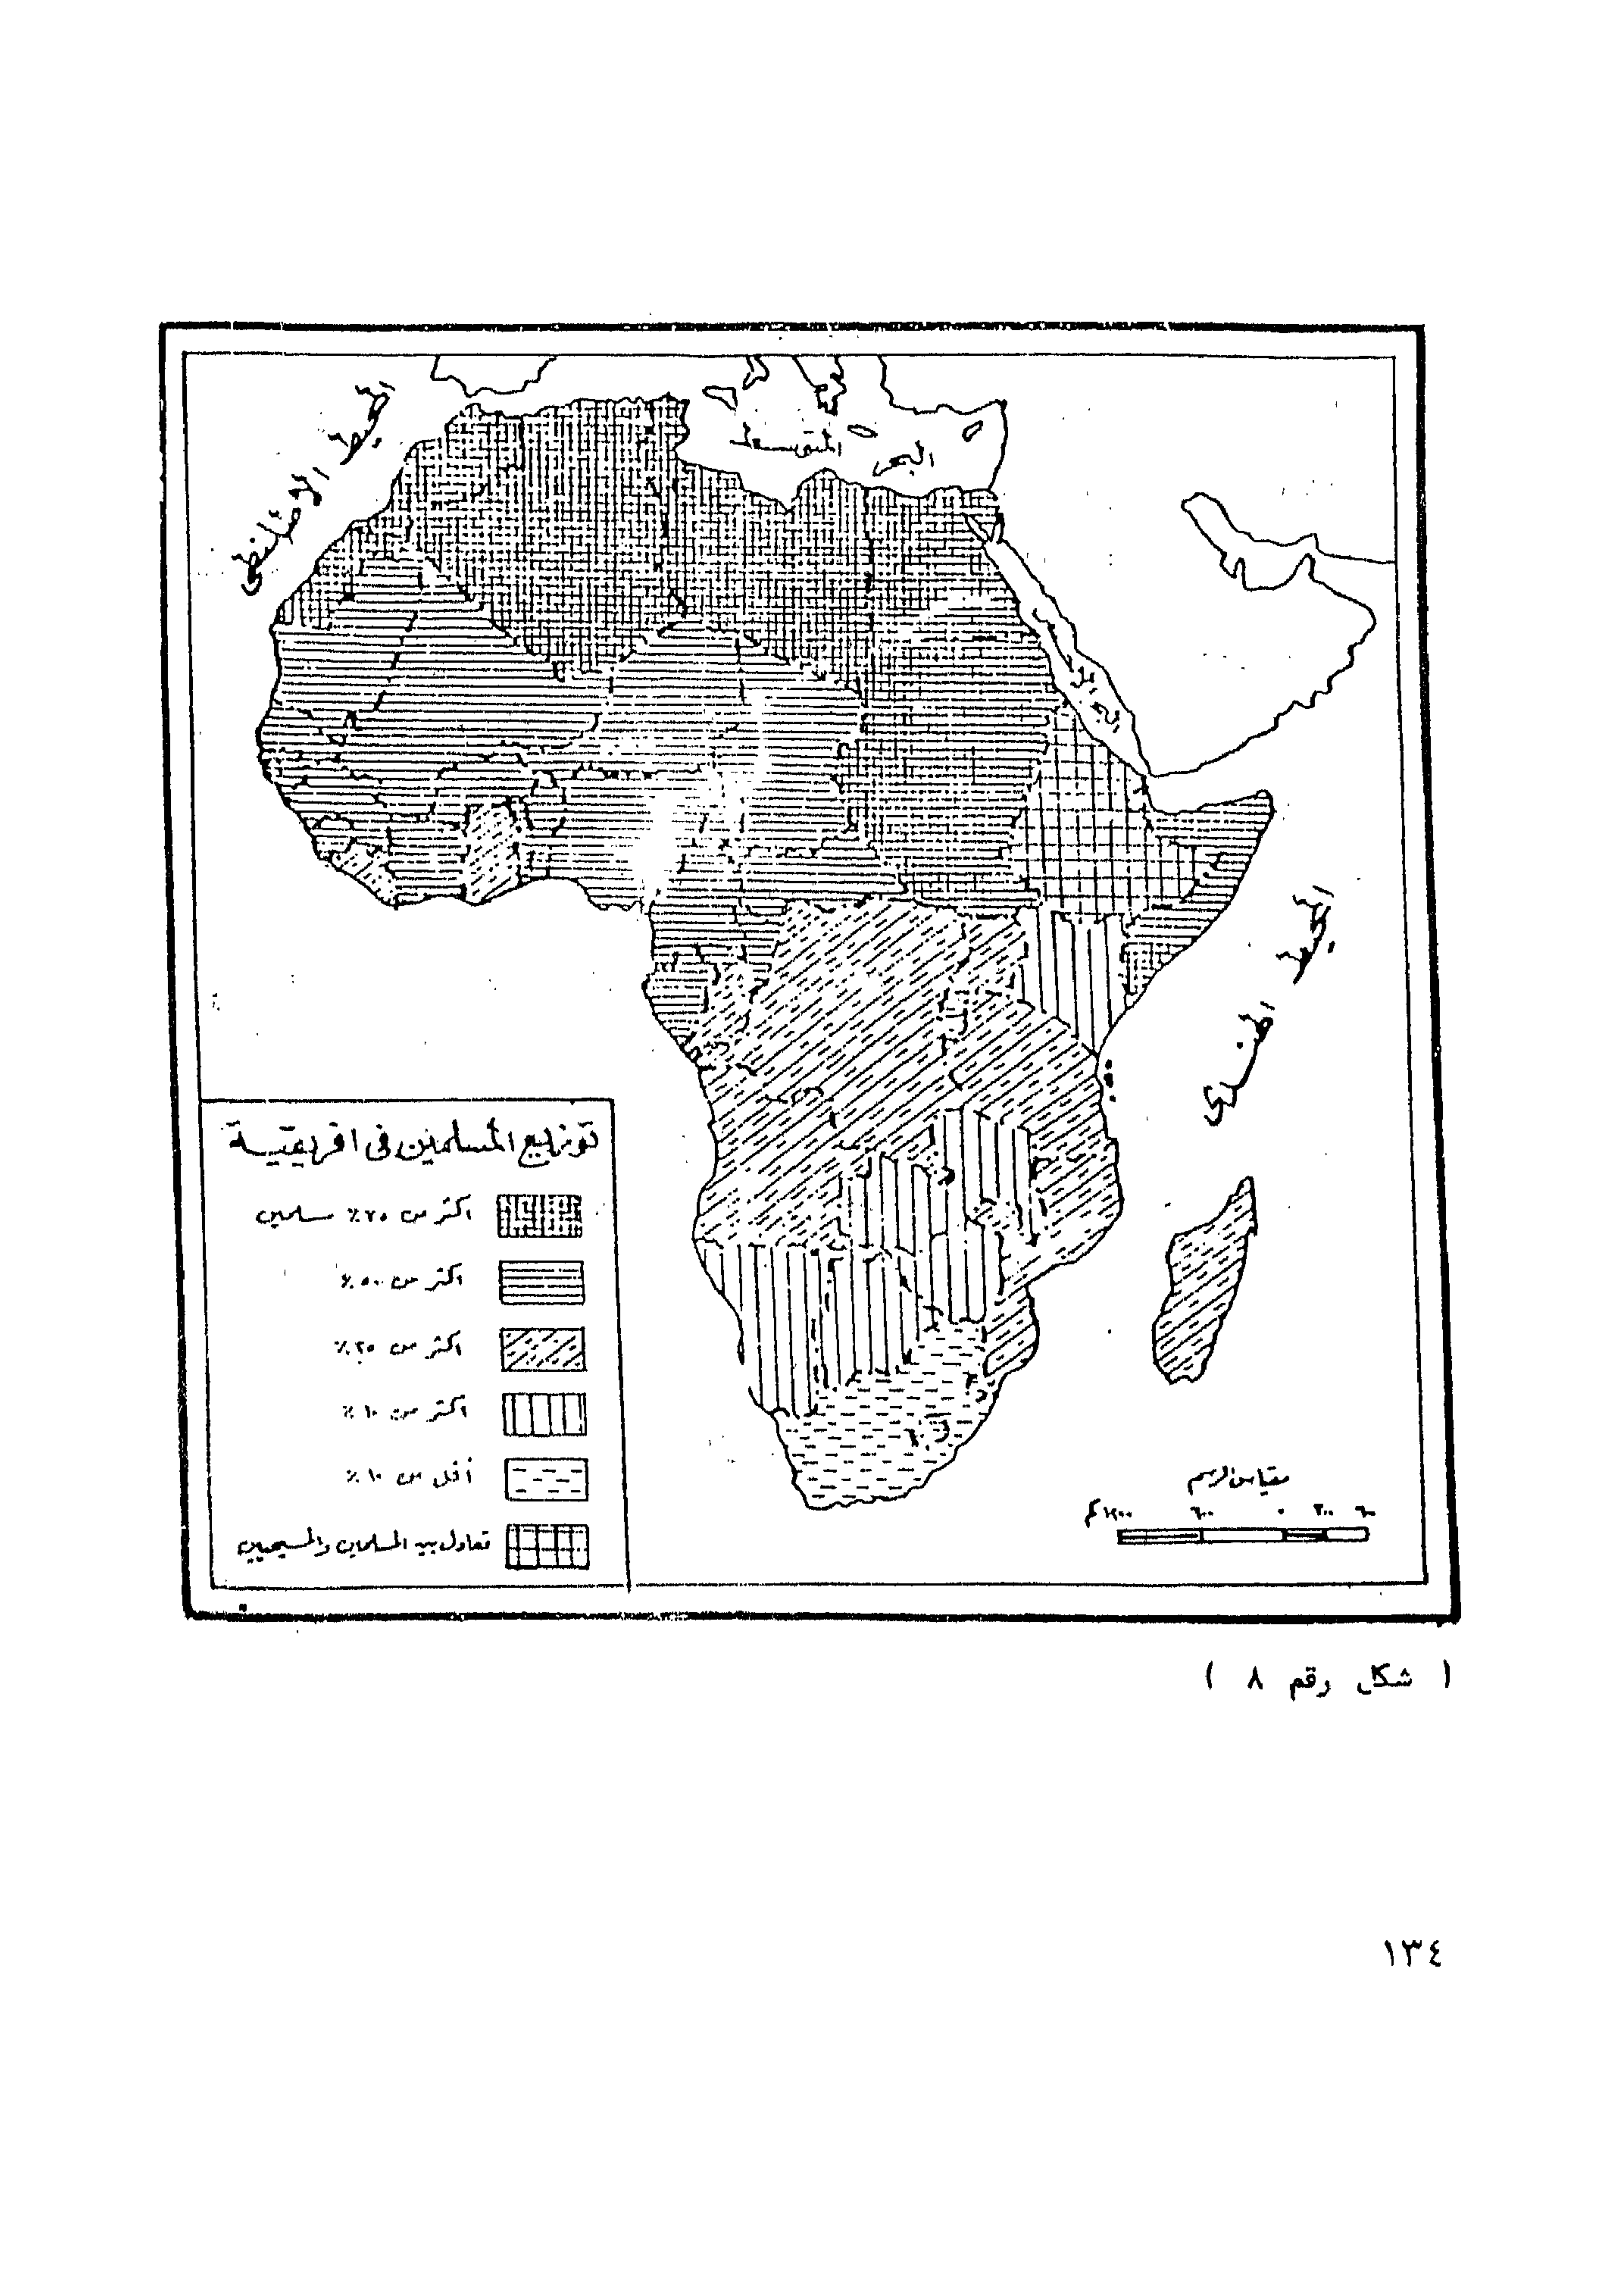 المحيط الأطلنطى
البحر المتوسط
البحر
المحيط الهندى
توزيع المسلمين فى افريقية
اكثر من ٧٥٪ مسلمين
اكثر من ٥٠٪
اكثر من ٢٥٪
اكثر من ١٠٪
أقل من ١٠٪
تعادل بين المسلمين والمسيحيين
مقياس الرسم
٦٠٠ ٣٠٠ ٠ ٦٠٠ ١٢٠٠ كم
( شكل رقم ٨ )
١٣٤